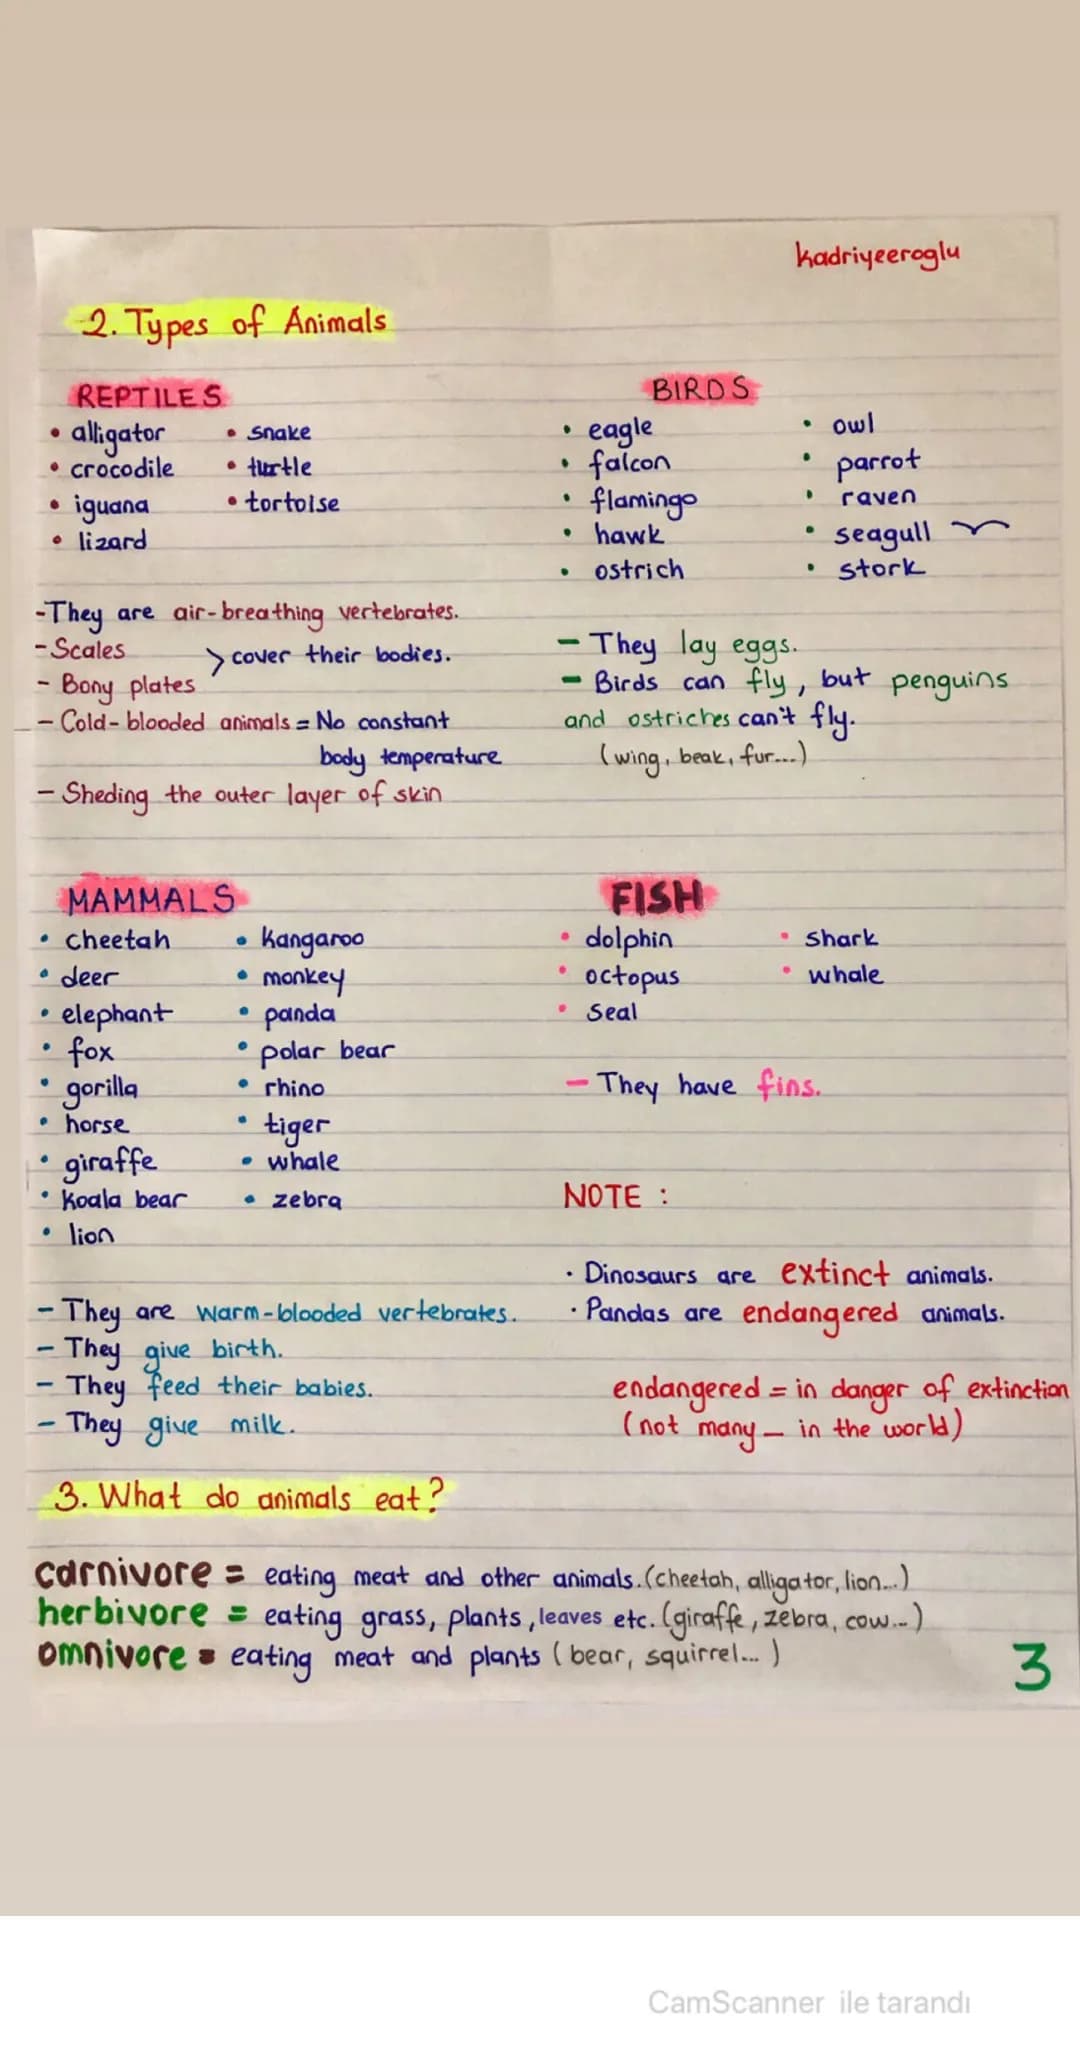 kadriyeeroglu
2. Types of Animals
REPTILES
• alligator • snake
• crocodile • turtle
• iguana • tortoise
• lizard
-They are air-breathing vertebrates.
- Scales
> cover their bodies.
- Bony plates
- Cold-blooded animals = No constant
body temperature
- Sheding the outer layer of skin
BIRDS
• eagle • owl
• falcon • parrot
• flamingo • raven
• hawk • seagull
• ostrich • stork
- They lay eggs.
- Birds can fly, but penguins
and ostriches can't fly.
(wing, beak, fur...)
MAMMALS
• cheetah • kangaroo
• deer • monkey
• elephant • panda
• fox • polar bear
• gorilla • rhino
• horse • tiger
• giraffe • whale
• koala bear • zebra
• lion
- They are warm-blooded vertebrates.
- They give birth.
- They feed their babies.
- They give milk.
FISH
• dolphin • shark
• octopus • whale
• seal
- They have fins.
NOTE :
· Dinosaurs are extinct animals.
· Pandas are endangered animals.
endangered = in danger of extinction
(not many _ in the world)
3. What do animals eat?
carnivore = eating meat and other animals. (cheetah, alligator, lion...)
herbivore = eating grass, plants, leaves etc. (giraffe, zebra, cow...)
omnivore = eating meat and plants (bear, squirrel... )
3
CamScanner ile tarandı